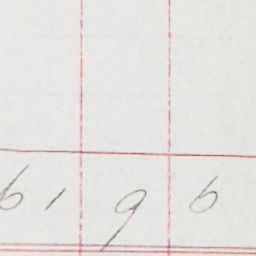 61 9 6